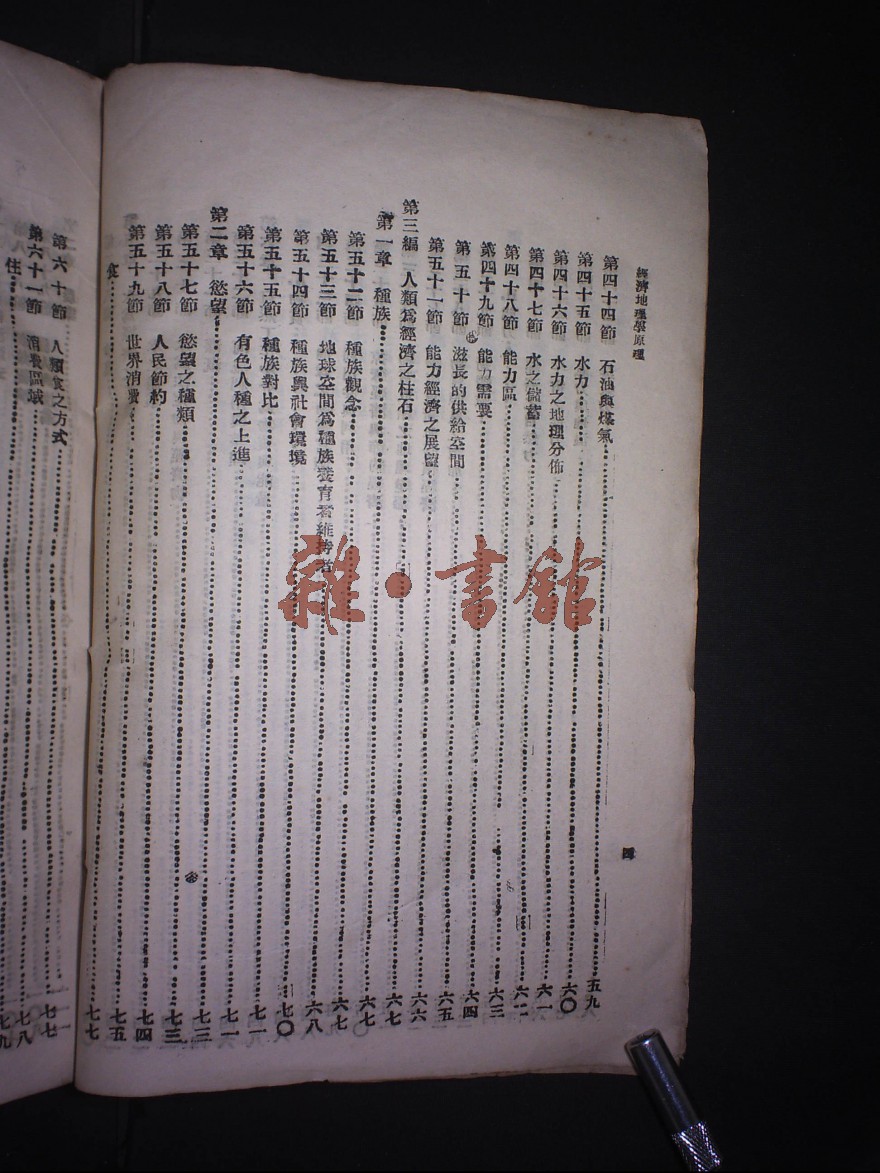 經濟地理學原理
四
第四十四節 石油與煤氣 五九
第四十五節 水力 六〇
第四十六節 水力之地理分佈 六一
第四十七節 水之儲蓄 六二
第四十八節 能力區 六三
第四十九節 能力需要 六四
第五十節 滋長的供給空間 六五
第五十一節 能力經濟之展望 六六
第三編 人類爲經濟之柱石 六七
第一章 種族 六七
第五十二節 種族觀念 六七
第五十三節 地球空間爲種族養育者維持者 六八
第五十四節 種族與社會環境 七〇
第五十五節 種族對比 七一
第五十六節 有色人種之上進 七一
第二章 慾望 七三
第五十七節 慾望之種類 七三
第五十八節 人民節約 七四
第五十九節 世界消費 七五
食 七七
第六十節 人類食之方式 七七
第六十一節 消費區域 七八
住 七九
雜·書館